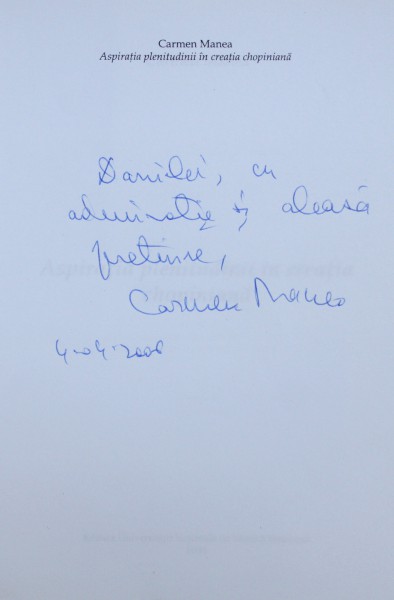 Carmen Manea
Aspirația plenitudinii în creația chopiniană
Danilei, cu
admirație și aleasă
prețuire,
Carmen Manea
4-04-2006
Aspirația plenitudinii în creația
chopiniană